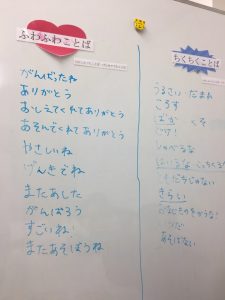 ふわふわことば
がんばったね
ありがとう
おしえてくれてありがとう
あそんでくれてありがとう
やさしいね
げんきでね
またあした
がんばろう
すごいね!
またあそぼうね
ちくちくことば
うるさい だまれ
ころす
ばか くそ
どけ!
しゃべるな
ともだちじゃない
きらい
あそばない